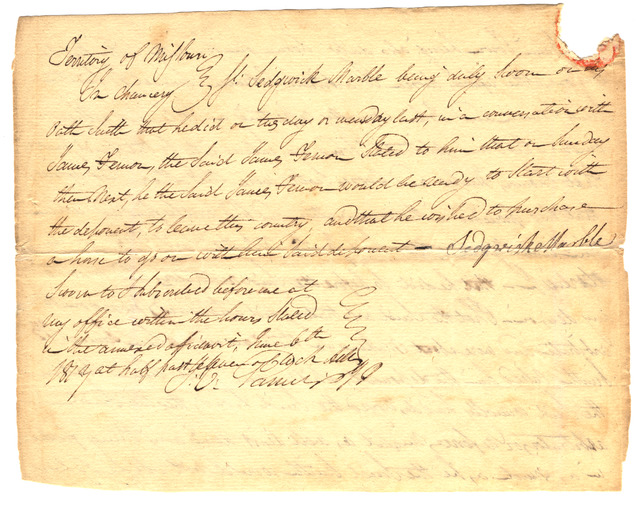 Territory of Missouri
In Chancery Ss. Sedgwick Marble being duly Sworn on his
Oath Saith that he did on tuesday or monday last, in a conversation with
James Fernor, the Said James Fernor Stated to him that on Sunday
then Next, he the Said James Fernor would be ready to Start with
the deponent, to leave this country, and that he wished to purchase
a horse to go on with Said deponent — Sedgwick Marble
Sworn to & Subscribed before me at
my office within the hours Stated
in the annexed affidavit, June 6th
at half past Seven oClock